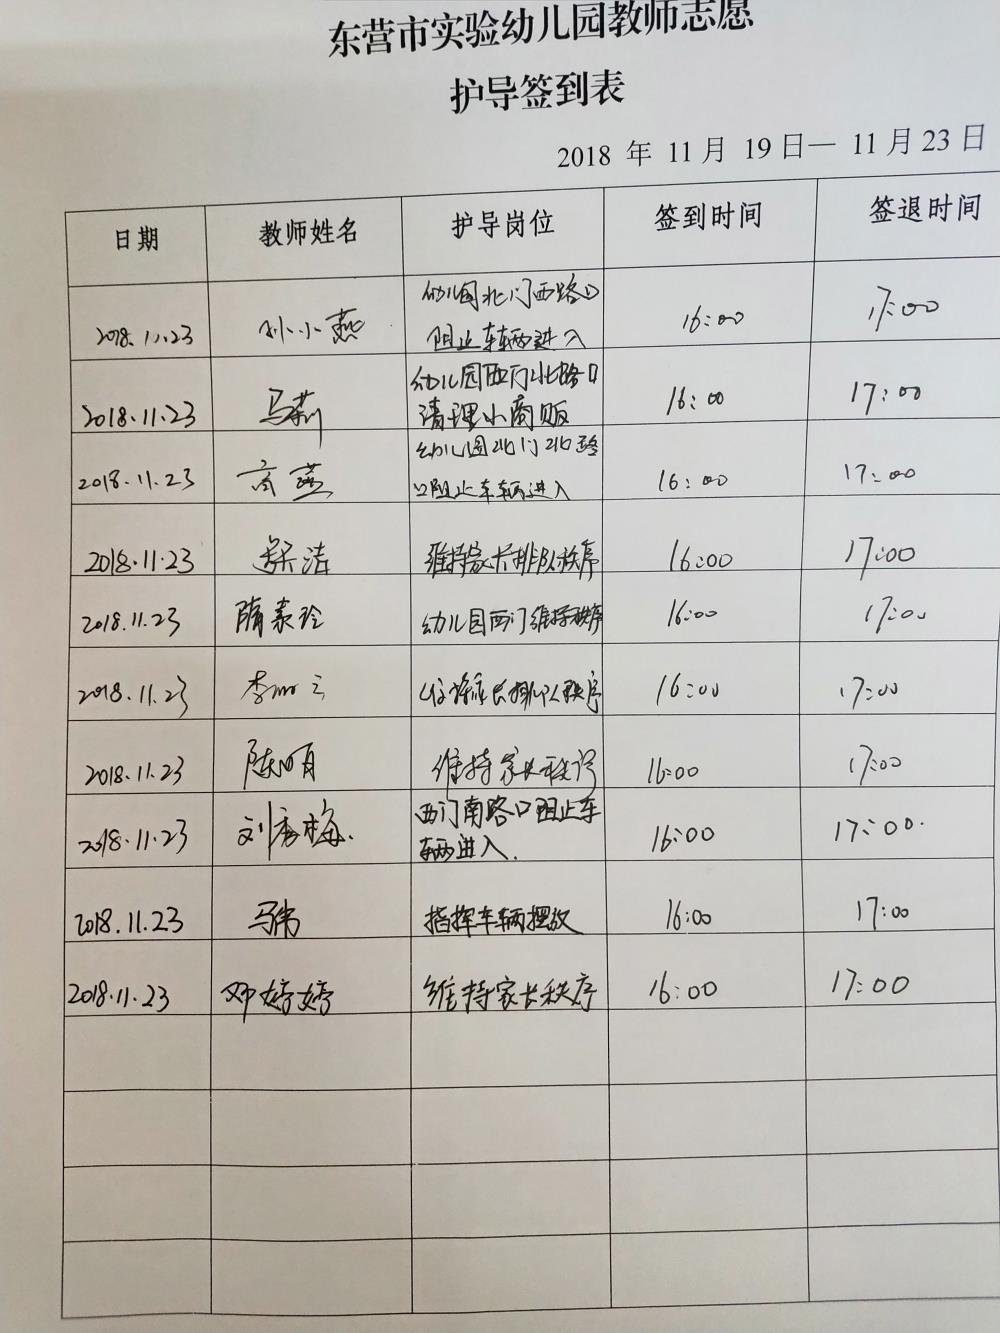 东营市实验幼儿园教师志愿
护导签到表
2018 年 11月 19日— 11月23日
日期 教师姓名 护导岗位 签到时间 签退时间
幼儿园北门西路口
2018.11.23 孙小燕 阻止车辆进入 16:00 17:00
幼儿园西门北路口
2018.11.23 马莉 清理小商贩 16:00 17:00
幼儿园北门北路
2018.11.23 高燕 口阻止车辆进入 16:00 17:00
2018.11.23 洁 维持家长排队秩序 16:00 17:00
2018.11.23 隋素玲 幼儿园西门维持秩序 16:00 17:00
2018.11.23 李 家长排队秩序 16:00 17:00
2018.11.23 陈明 维持家长秩序 16:00 17:00
西门南路口阻止车
2018.11.23 刘秀梅. 辆进入. 16:00 17:00.
2018.11.23 马伟 指挥车辆摆放 16:00 17:00
2018.11.23 邓婷婷 维持家长秩序 16:00 17:00